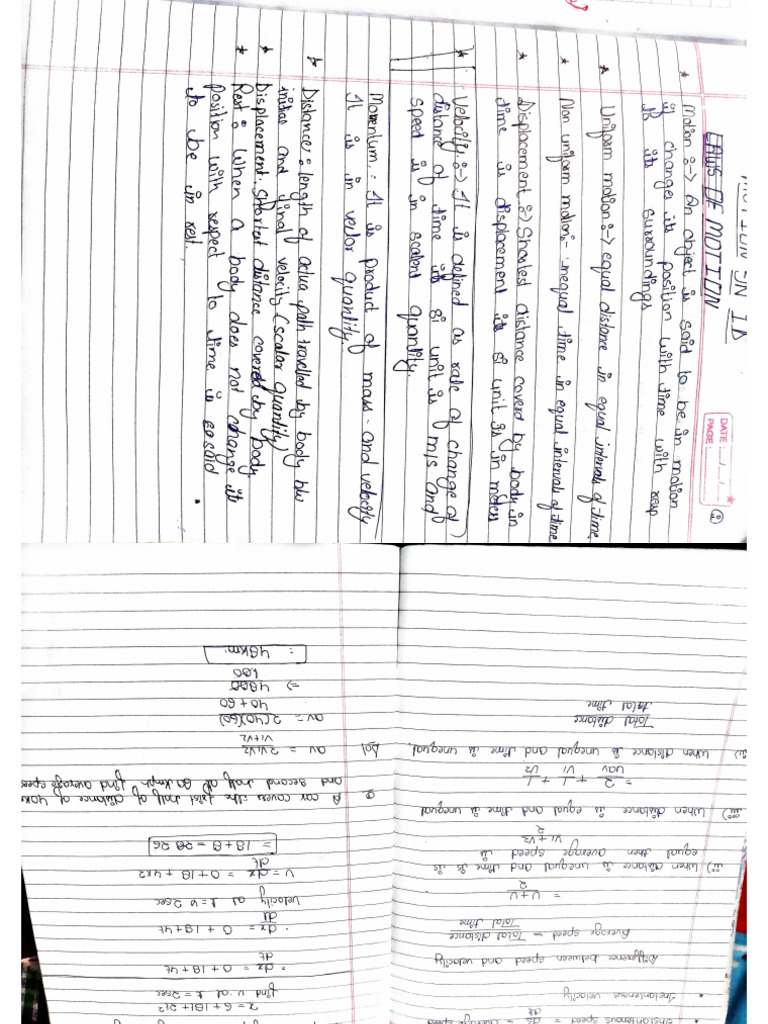 MOTION IN 1D
LAWS OF MOTION
DATE: / /
PAGE:
* Motion :-> An object is said to be in motion
if changes its position with time with resp
its surroundings
* Uniform motion :-> equal distance in equal intervals of time
* Non uniform motion :- unequal time in equal intervals of time
* Displacement :-> Shortest distance coverd by body in
time is displacement its si unit is in meters
* Velocity :-> It is defined as rate of change of
distance of time its si unit is m/s and
speed is in scalent quantity.
Momentum :- It is product of mass - and velocity
It is in vector quantity.
* Distance :- length of actua path travelled by body b/w
initial and final velocity (scalar quantity)
* Displacement: Shortest distance covered by body
* Rest :- When a body does not change its
Position with respect to time is so said
to be in rest.
• Instantenous speed = ds/dt = average speed
• Instantenous velocity
Difference between speed and velocity
Average speed = Total distance / Total time
= u+v / 2
ii) When distance is unequal and time is is
equal then average speed is
V1+V2 / 2
iii) When distance is equal and time is unequal
= 2/uav + 1/V1 + 1/V2
When distance is unequal and time is unequal.
Total distance
total time
x = 6 + 18t + 2t²
find v at t = 2sec
• dx/dt = 0 + 18 + 4t
• dx/dt = 0 + 18 + 4t
Velocity at t = 2sec
v = dx/dt = 0 + 18 + 4x2
= 18+8 = 26
Q A car covers the first half of distance at 40km
and second half at 60 kmph find average speed
Sol av = 2V1V2
V1+V2
av = 2(40)(60)
40+60
=> 4800
100
= 48km.